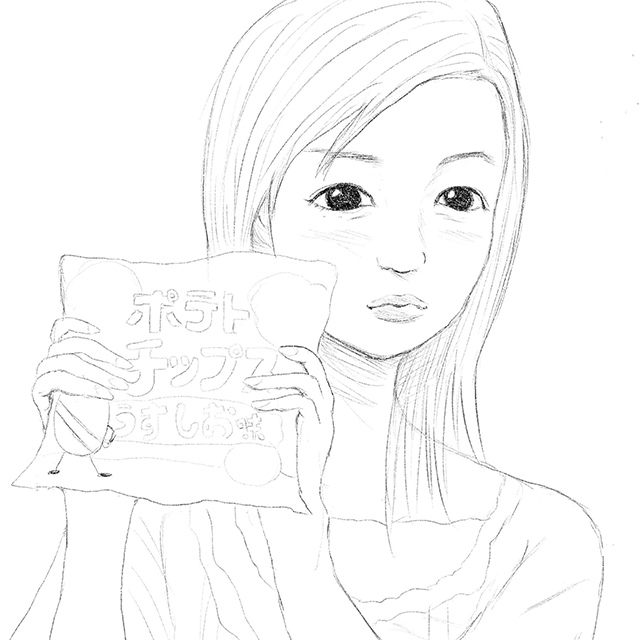 ポテト
チップス
うすしお味